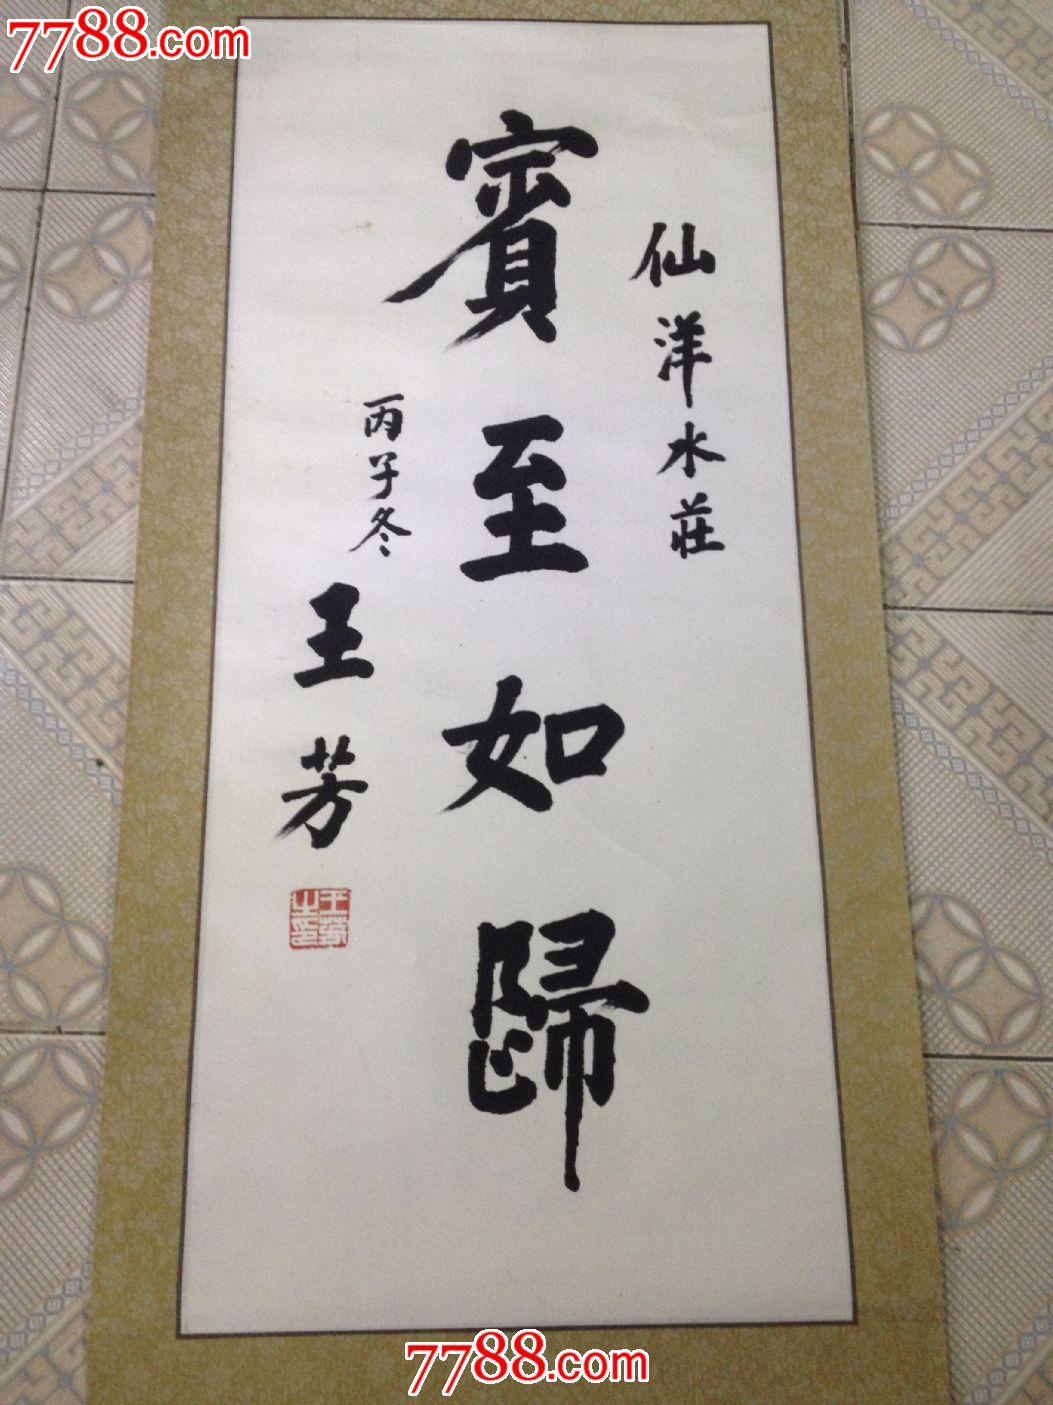 7788.com
仙洋水莊
賓至如歸
丙子冬
王芳
王芳之印
7788.com